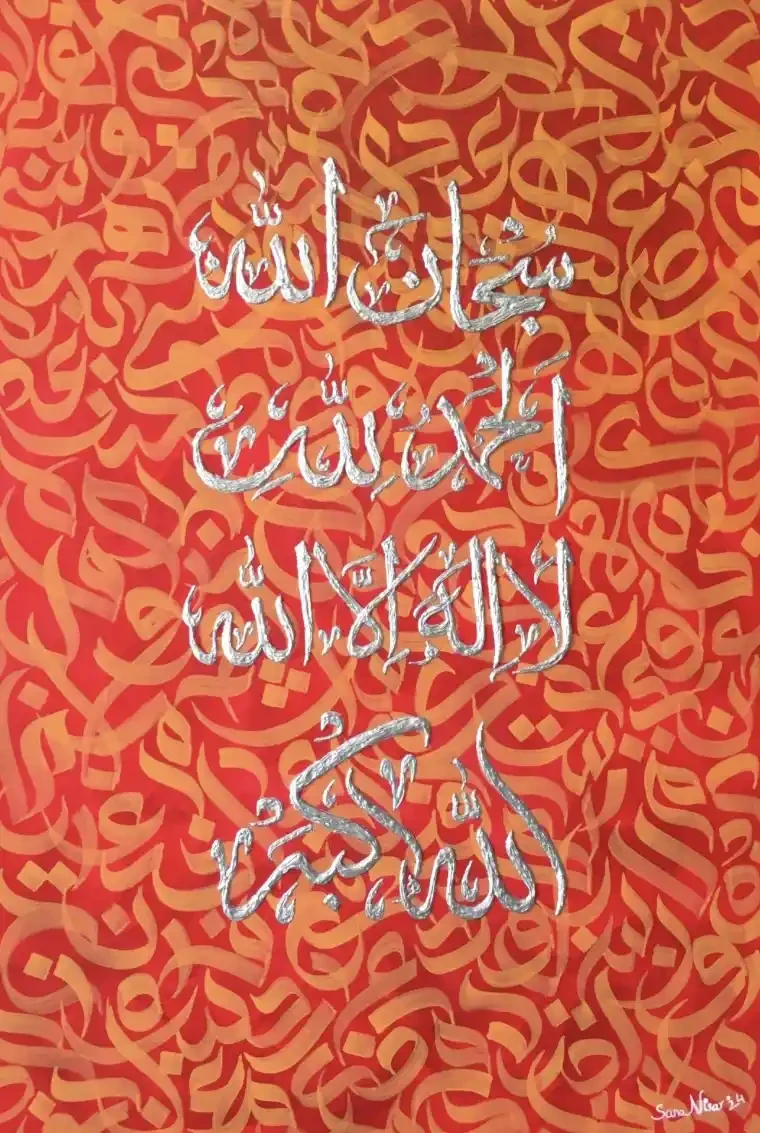 سُبْحَانَ اللّٰه
اَلْحَمْدُ لِلّٰهِ
لَا اِلٰهَ اِلَّا اللّٰه
اللّٰه اَكْبَرُ
Sana Nisar